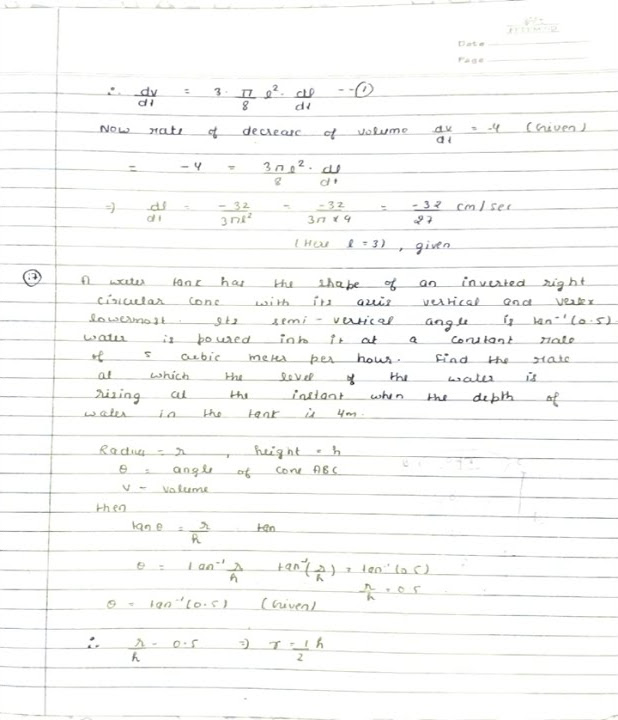 Date
Page
∴ dv/dt = 3 · π/8 l² · dl/dt --①
Now rate of decrease of volume dv/dt = -4 (Given)
= -4 = 3πl²/8 · dl/dt
⇒) dl/dt = -32/3πl² = -32/3π×9 = -32/27 cm/sec
(Here l = 3), given
17 A water tank has the shape of an inverted right
circular cone with its axis vertical and vertex
lowermost. Its semi-vertical angle is tan⁻¹(0.5).
water is poured into it at a constant rate
of 5 cubic meter per hour. Find the rate
at which the level of the water is
rising at the instant when the depth of
water in the tank is 4m.
Radius = r, height = h
θ = angle of cone ABC
V - Volume
then
tan θ = r/h tan
θ = tan⁻¹ r/h tan⁻¹(r/h) = tan⁻¹(0.5)
r/h = 0.5
θ = tan⁻¹(0.5) (Given)
∴ r/h - 0.5 ⇒) r = 1/2 h